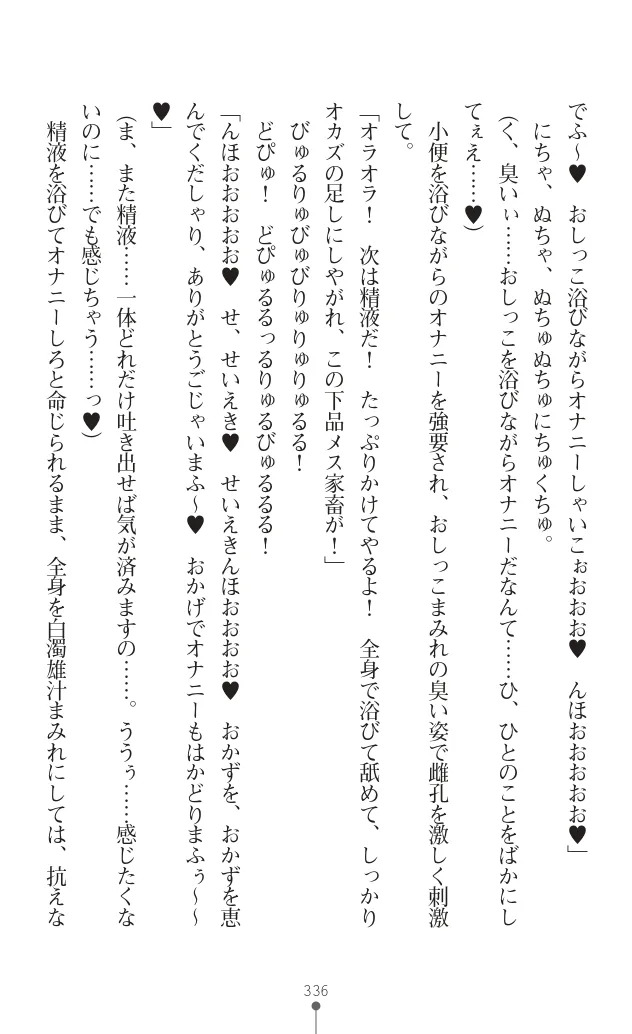 でふ～♥　おしっこ浴びながらオナニーしゃいこぉおおお♥　んほおおおおお♥」
　にちゃ、ぬちゃ、ぬちゅぬちゅにちゅくちゅ。
（く、臭いぃ……おしっこを浴びながらオナニーだなんて……ひ、ひとのことをばかにし
てぇえ……♥）
　小便を浴びながらのオナニーを強要され、おしっこまみれの臭い姿で雌孔を激しく刺激
して。
「オラオラ！　次は精液だ！　たっぷりかけてやるよ！　全身で浴びて舐めて、しっかり
オカズの足しにしやがれ、この下品メス家畜が！」
　びゅるりゅびゅびりゅりゅりゅるる！
　どぴゅ！　どぴゅるるっるりゅるびゅるるる！
「んほおおおおお♥　せ、せいえき♥　せいえきんほおおおお♥　おかずを、おかずを恵
んでくだしゃり、ありがとうごじゃいまふ～♥　おかげでオナニーもはかどりまふぅ～～
♥」
（ま、また精液……一体どれだけ吐き出せば気が済みますの……。ううぅ……感じたくな
いのに……でも感じちゃう……っ♥）
　精液を浴びてオナニーしろと命じられるまま、全身を白濁雄汁まみれにしては、抗えな
336